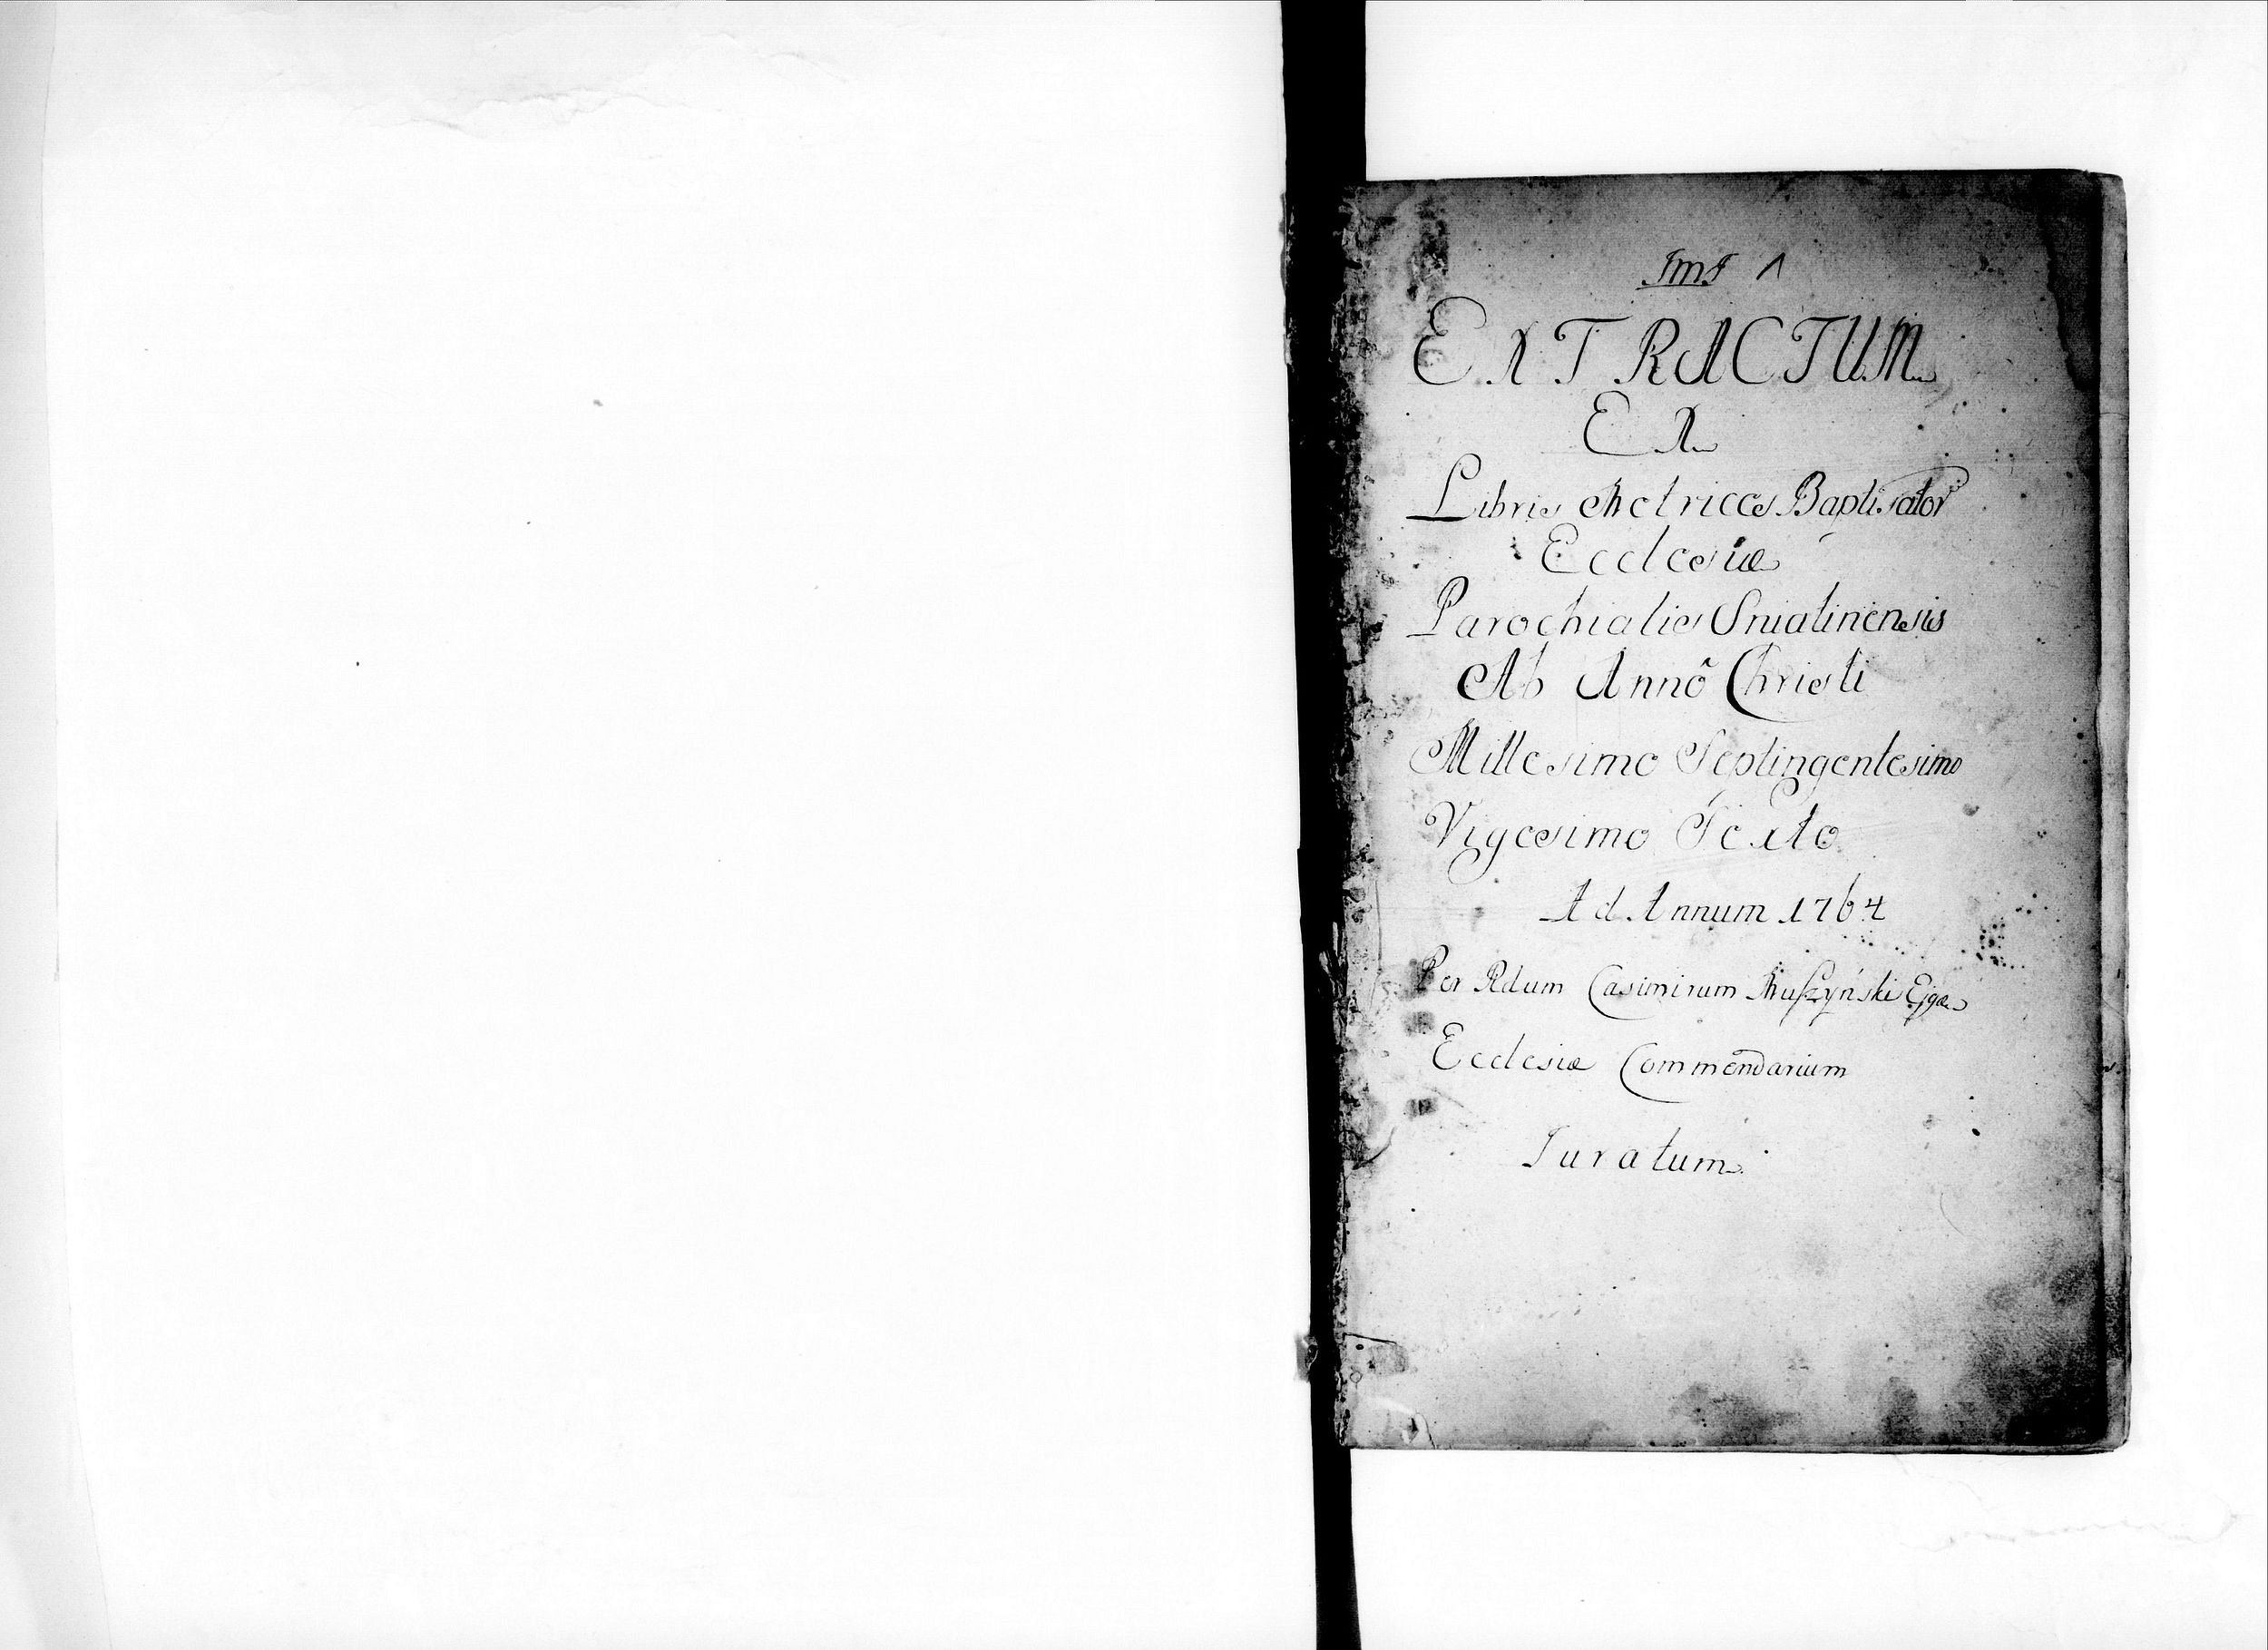 Jms 1
EXTRACTUM
EX
Libris Metrices Baptisator
Ecclesiæ
Parochialis Sniatinensis
Ab Annõ Christi
Millesimo Septingentesimo
Vigesimo Sexto
Ad Annum 1764
Per Rdum Casimirum Muszyński Ejga
Ecclesiæ Commendarium
Juratum